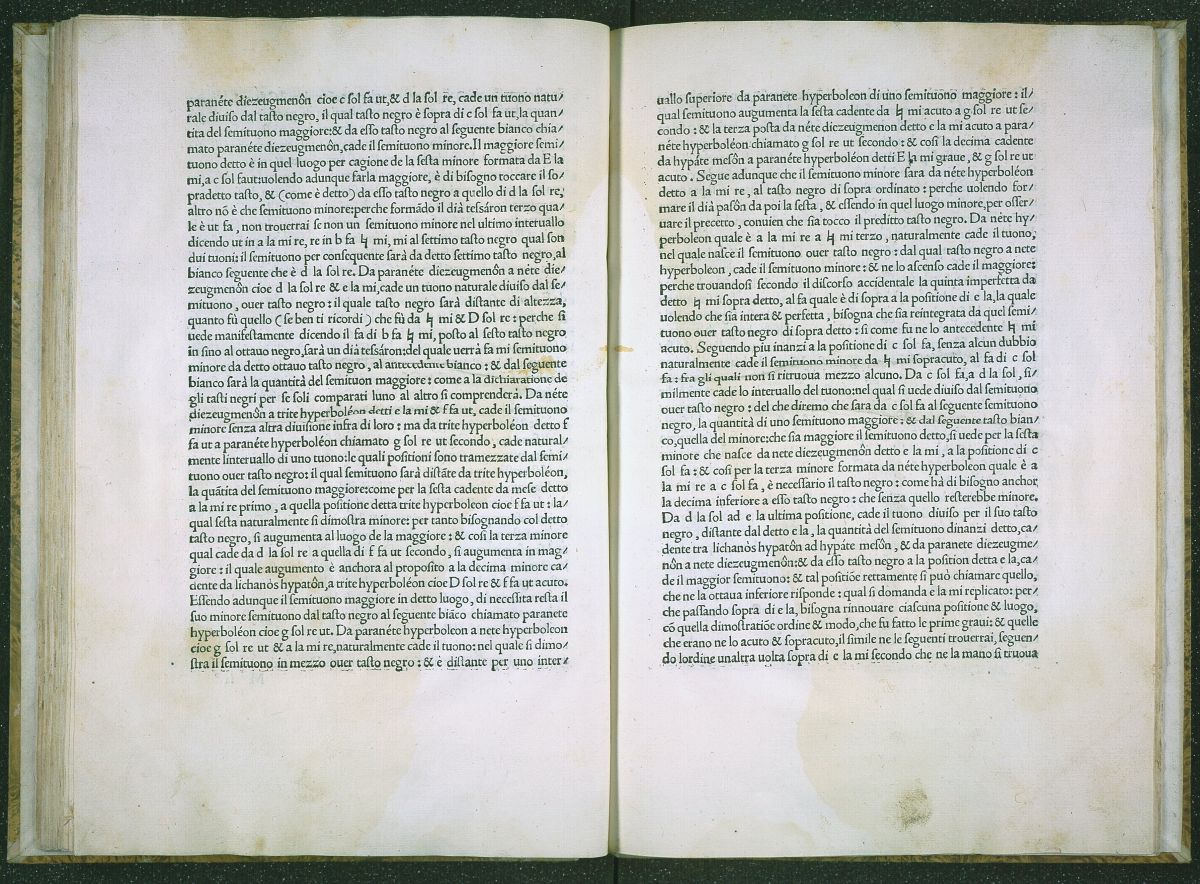 paranéte diezeugmenôn cioe c sol fa ut,& d la sol re, cade un tuono natu/
rale diuiso dal tasto negro, il qual tasto negro è sopra di c sol fa ut,la quan/
tita del semituono maggiore:& da esso tasto negro al seguente bianco chia/
mato paranéte diezeugmenôn,cade il semituono minore.Il maggiore semi/
tuono detto è in quel luogo per cagione de la sesta minore formata da E la
mi,a c sol faut:uolendo adunque farla maggiore, è di bisogno toccare il so/
pradetto tasto, & (come è detto) da esso tasto negro a quello di d la sol re,
altro nõ è che semituono minore:perche formãdo il dià tessáron terzo qua/
le è ut fa, non trouerai se non un semituono minore nel ultimo interuallo
dicendo ut in a la mi re, re in b fa ♮ mi, mi al settimo tasto negro qual son
dui tuoni: il semituono per consequente sarà da detto settimo tasto negro,al
bianco seguente che è d la sol re. Da paranéte diezeugmenôn a néte die/
zeugmenôn cioe d la sol re & e la mi,cade un tuono naturale diuiso dal se/
mituono, ouer tasto negro: il quale tasto negro sarà distante di altezza,
quanto fù quello (se ben ti ricordi) che fù da ♮ mi & D sol re: perche si
uede manifestamente dicendo il fa di b fa ♮ mi, posto al sesto tasto negro
in sino al ottauo negro,sarà un dià tessáron:del quale uerrà fa mi semituono
minore da detto ottauo tasto negro, al antecedente bianco: & dal seguente
bianco sarà la quantità del semituon maggiore: come a la dichiaratione de
gli tasti negri per se soli comparati luno al altro si comprenderà. Da néte
diezeugmenôn a trite hyperboléon detti e la mi & f fa ut, cade il semituono
minore senza altra diuisione infra di loro: ma da trite hyperboléon detto f
fa ut a paranéte hyperboléon chiamato g sol re ut secondo, cade natural/
mente linteruallo di uno tuono:le quali positioni sono tramezzate dal semi/
tuono ouer tasto negro: il qual semituono sarà distãte da trite hyperboléon,
la quãtita del semituono maggiore:come per la sesta cadente da mese detto
a la mi re primo, a quella positione detta trite hyperboleon cioe f fa ut: la/
qual sesta naturalmente si dimostra minore: per tanto bisognando col detto
tasto negro, si augumenta al luogo de la maggiore: & cosi la terza minore
qual cade da d la sol re a quella di f fa ut secondo, si augumenta in mag/
giore: il quale augumento è anchora al proposito a la decima minore ca/
dente da lichanòs hypatôn,a trite hyperboléon cioe D sol re & f fa ut acuto.
Essendo adunque il semituono maggiore in detto luogo, di necessita resta il
suo minore semituono dal tasto negro al seguente biãco chiamato paranete
hyperboléon cioe g sol re ut. Da paranéte hyperboleon a nete hyperboleon
cioe g sol re ut & a la mi re,naturalmente cade il tuono: nel quale si dimo/
stra il semituono in mezzo ouer tasto negro: & è distante per uno inter/
uallo superiore da paranete hyperboleon di uno semituono maggiore: il/
qual semituono augumenta la sesta cadente da ♮ mi acuto a g sol re ut se/
condo: & la terza posta da néte diezeugmenon detto e la mi acuto a para/
néte hyperboléon chiamato g sol re ut secondo: & cosi la decima cadente
da hypáte mesôn a paranéte hyperboléon detti E la mi graue, & g sol re ut
acuto. Segue adunque che il semituono minore sara da néte hyperboléon
detto a la mi re, al tasto negro di sopra ordinato: perche uolendo for/
mare il dià pasôn da poi la sesta, & essendo in quel luogo minore,per osser/
uare il precetto, conuien che sia tocco il preditto tasto negro. Da néte hy/
perboleon quale è a la mi re a ♮ mi terzo, naturalmente cade il tuono,
nel quale nasce il semituono ouer tasto negro: dal qual tasto negro a nete
hyperboleon, cade il semituono minore: & ne lo ascenso cade il maggiore:
perche trouandosi secondo il discorso accidentale la quinta imperfetta da
detto ♮ mi sopra detto, al fa quale è di sopra a la positione di e la,la quale
uolendo che sia intera & perfetta, bisogna che sia reintegrata da quel semi/
tuono ouer tasto negro di sopra detto: si come fu ne lo antecedente ♮ mi
acuto. Seguendo piu inanzi a la positione di c sol fa, senza alcun dubbio
naturalmente cade il semituono minore da ♮ mi sopracuto, al fa di c sol
fa: fra gli quali non si ritruoua mezzo alcuno. Da c sol fa,a d la sol, si/
milmente cade lo interuallo del tuono:nel qual si uede diuiso dal semituono
ouer tasto negro: del che diremo che sara da c sol fa al seguente semituono
negro, la quantità di uno semituono maggiore: & dal seguente tasto bian/
co,quella del minore:che sia maggiore il semituono detto,si uede per la sesta
minore che nasce da nete diezeugmenôn detto e la mi, a la positione di c
sol fa: & cosi per la terza minore formata da néte hyperboleon quale è a
la mi re a c sol fa, è necessario il tasto negro: come hà di bisogno anchor
la decima inferiore a esso tasto negro: che senza quello resterebbe minore.
Da d la sol ad e la ultima positione, cade il tuono diuiso per il suo tasto
negro, distante dal detto e la, la quantità del semituono dinanzi detto,ca/
dente tra lichanòs hypatôn ad hypáte mesôn, & da paranete diezeugme/
nôn a nete diezeugmenôn:& da esso tasto negro a la position detta e la,ca/
de il maggior semituono: & tal positiõe rettamente si può chiamare quello,
che ne la ottaua inferiore risponde: qual si domanda e la mi replicato: per/
che passando sopra di e la, bisogna rinnouare ciascuna positione & luogo,
cõ quella dimostratiõe ordine & modo,che fu fatto le prime graui: & quelle
che erano ne lo acuto & sopracuto,il simile ne le seguenti trouerai, seguen/
do lordine unaltra uolta sopra di e la mi secondo che ne la mano si truoua